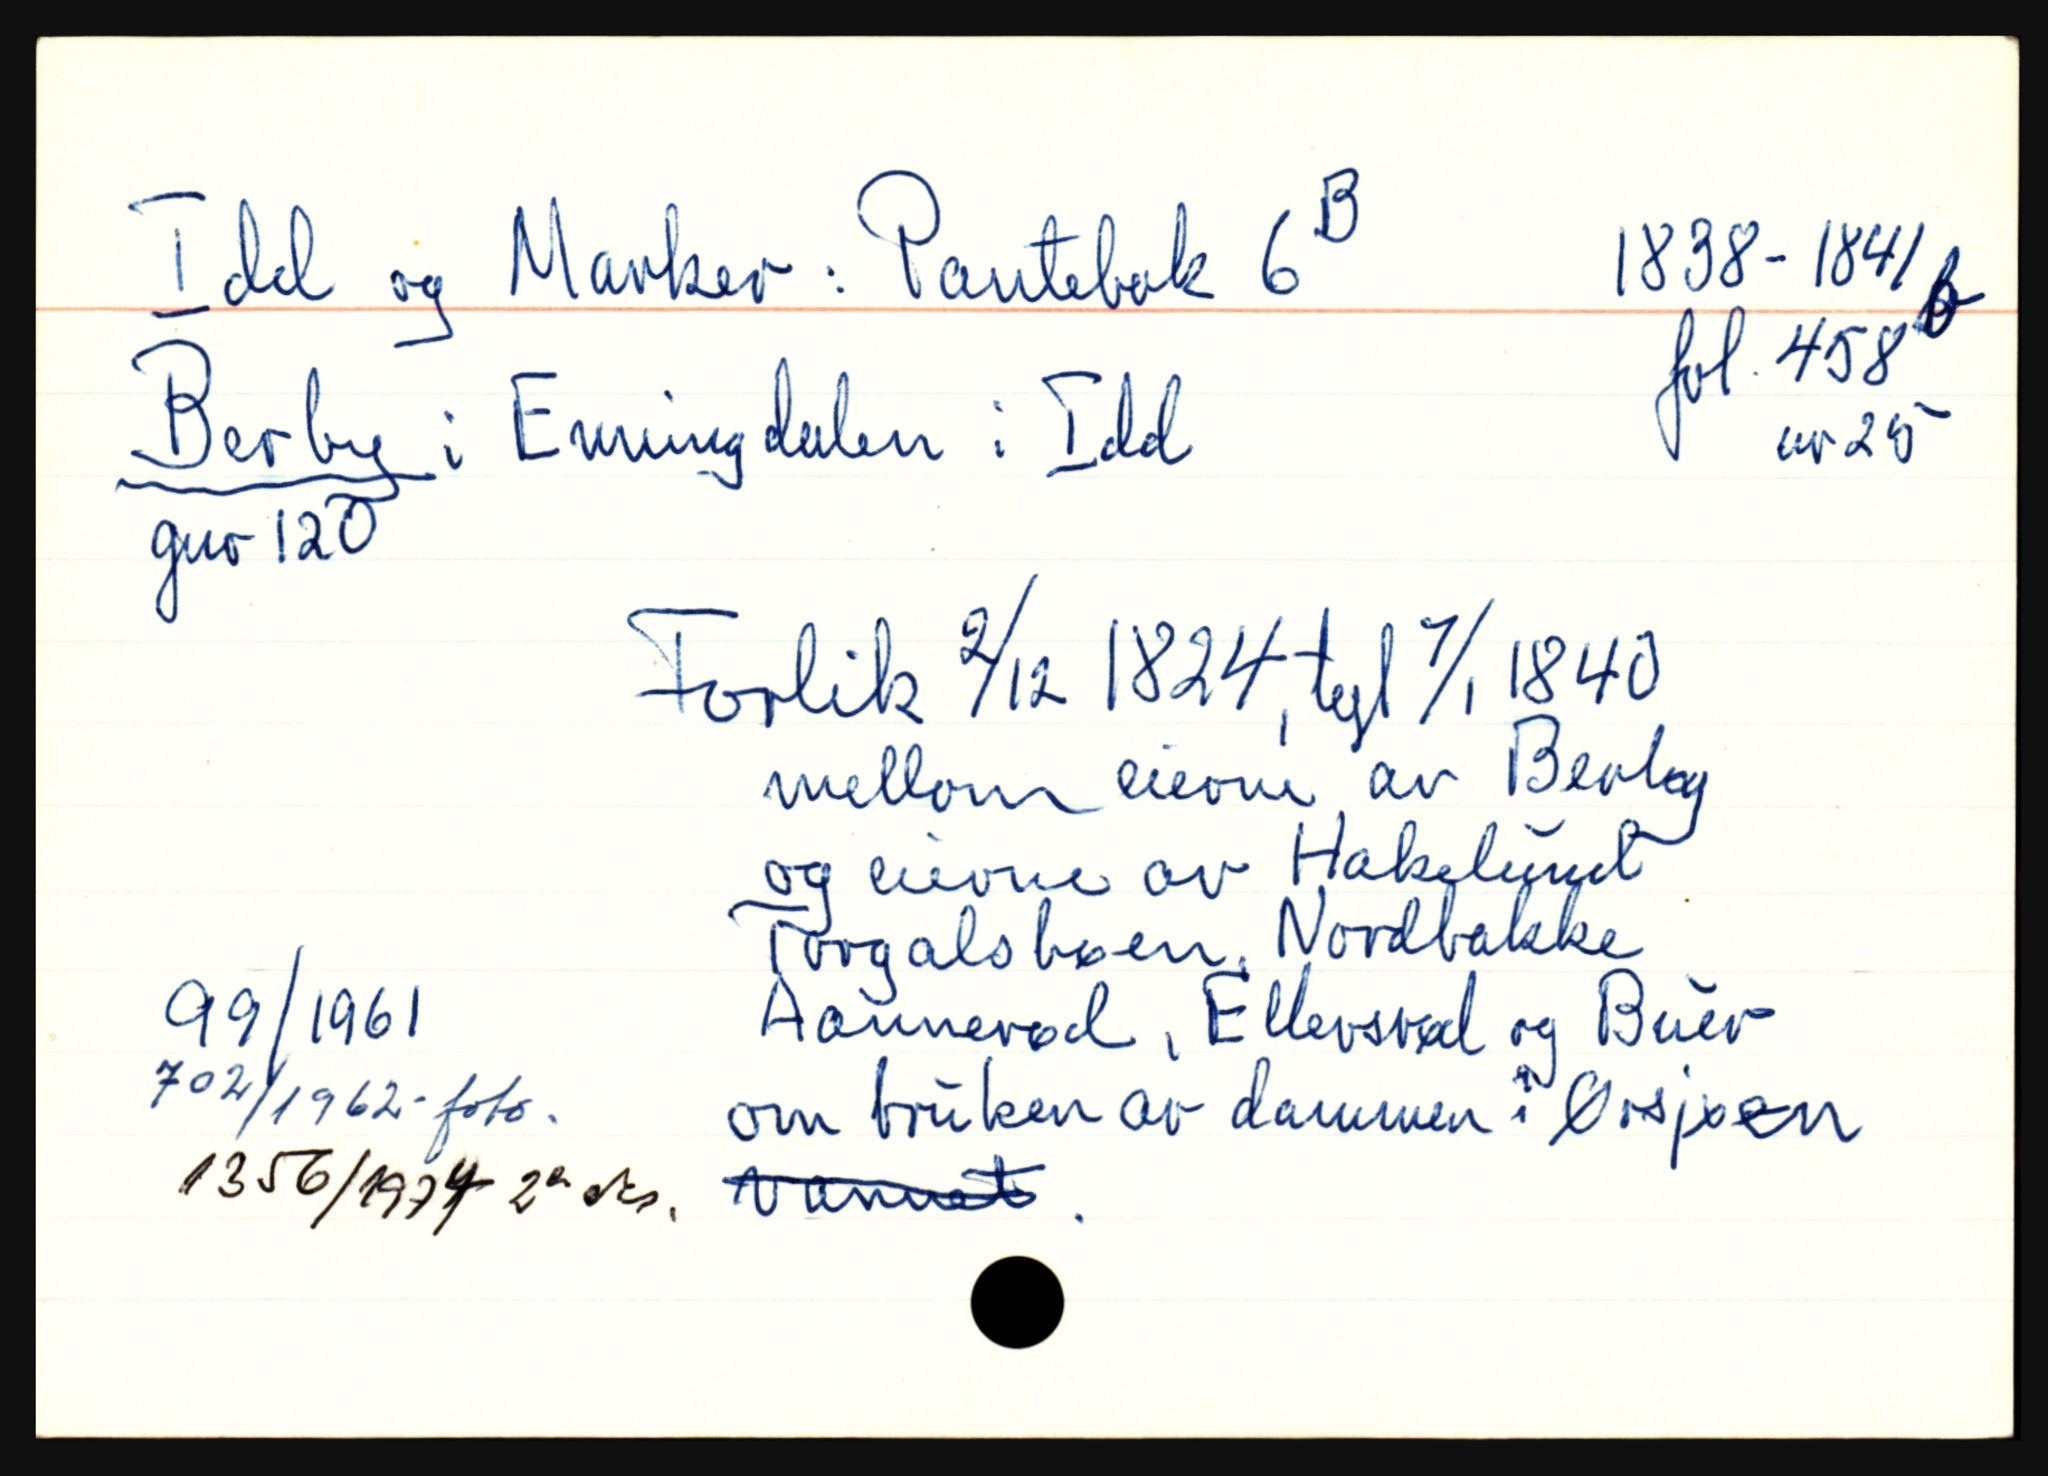 Idd og Marker: Pantebok 6B 1838-1841
Berby i Enningdalen i Idd fol. 458b
nr 25
gnr 120
Forlik 2/12 1824, tgl 7/1 1840
mellom eierne av Berby
og eierne av Hakelund
Torgalsbøen, Nordbakke
99/1961 Aannerød, Ellersrød og Buer
702/1962- foto. om bruken av dammen i Ørsjøen
1356/1974 2 eks. vannet.